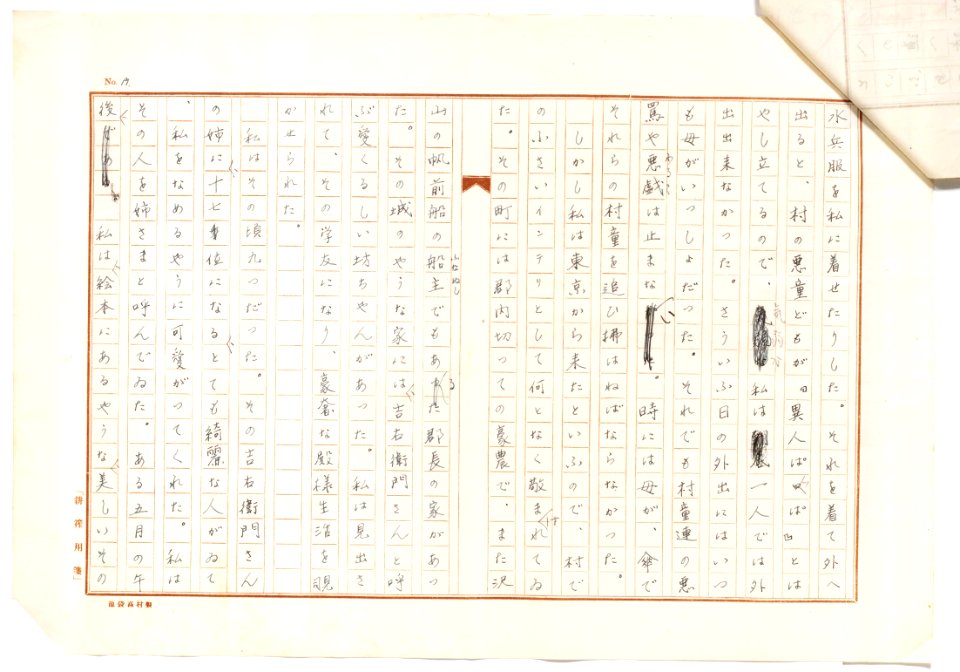 No. 19.
水兵服を私に着せたりした。それを着て外へ
出ると、村の悪童どもが「異人ぱゝぱ」とは
やし立てるので、気弱な私は一人では外
出出来なかつた。さういふ日の外出にはいつ
も母がいつしょだつた。それでも村童達の悪
罵や悪戯は止まない。時には母が、傘で
それらの村童を追ひ拂はねばならなかつた。
しかし私は東京から来たといふので、村で
のふさいインテリとして何となく敬まはれてゐ
た。その町には郡内切つての豪農で、また沢
山の帆前船の船主でもある郡長の家があつ
ふなぬし
た。その城のやうな家には吉右衛門さんと呼
ぶ愛くるしい坊ちやんがあつた。私は見出さ
れて、その学友になり、豪奢な殿様生活を覗
かせられた。
私はその頃九つだつた。その吉右衛門さん
の姉に十七位になるとても綺麗な人がゐて
、私をなめるやうに可愛がつてくれた。私は
その人を姉さまと呼んでゐた。ある五月の午
後 私は絵本にあるやうな美しいその